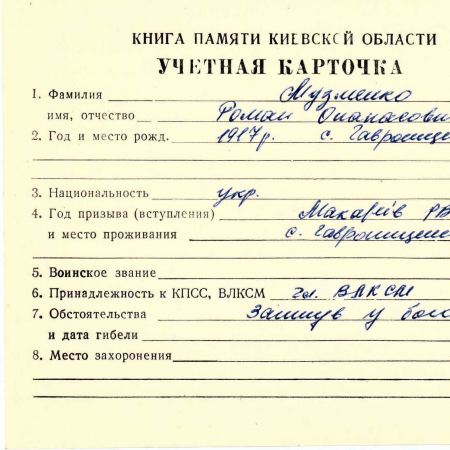 КНИГА ПАМЯТИ КИЕВСКОЙ ОБЛАСТИ
УЧЕТНАЯ КАРТОЧКА
1. Фамилия Музменко
имя, отчество Роман Опанасови
2. Год и место рожд. 1917р. с. Гавронище
3. Национальность укр.
4. Год призыва (вступления) Макарів РВ
и место проживания с. Гавронище
5. Воинское звание
6. Принадлежность к КПСС, ВЛКСМ чл. ВЛКСМ
7. Обстоятельства Загинув у бою
и дата гибели
8. Место захоронения